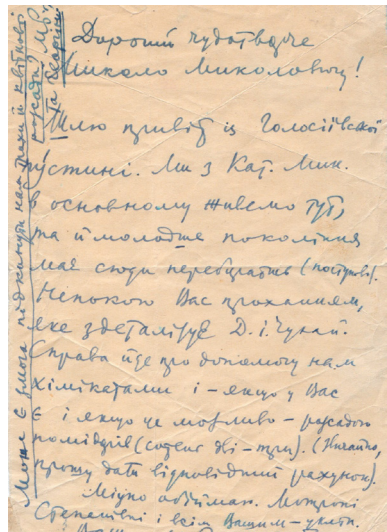 Дорогий чудотворче
Миколо Миколовичу!
Шлю привіт із Голосіївської
пустині. Ми з Кат. Мик.
в основному живемо тут,
та й молодше покоління
має сюди перебиратись (поступово).
Непокою Вас проханням,
яке здеталізує Д. і. Чугай.
Справа йде про допомогу нам
хімікатами і – якщо у Вас
є і якщо це можливо – розсадою
помідорів (сотень дві – три). (Звичайно,
прошу дати відповідний рахунок).
Міцно обіймаю. Мотроні
Степанівні і всім Вашим –
Може є змога підкинути нам трохи й квіткової
розсади?